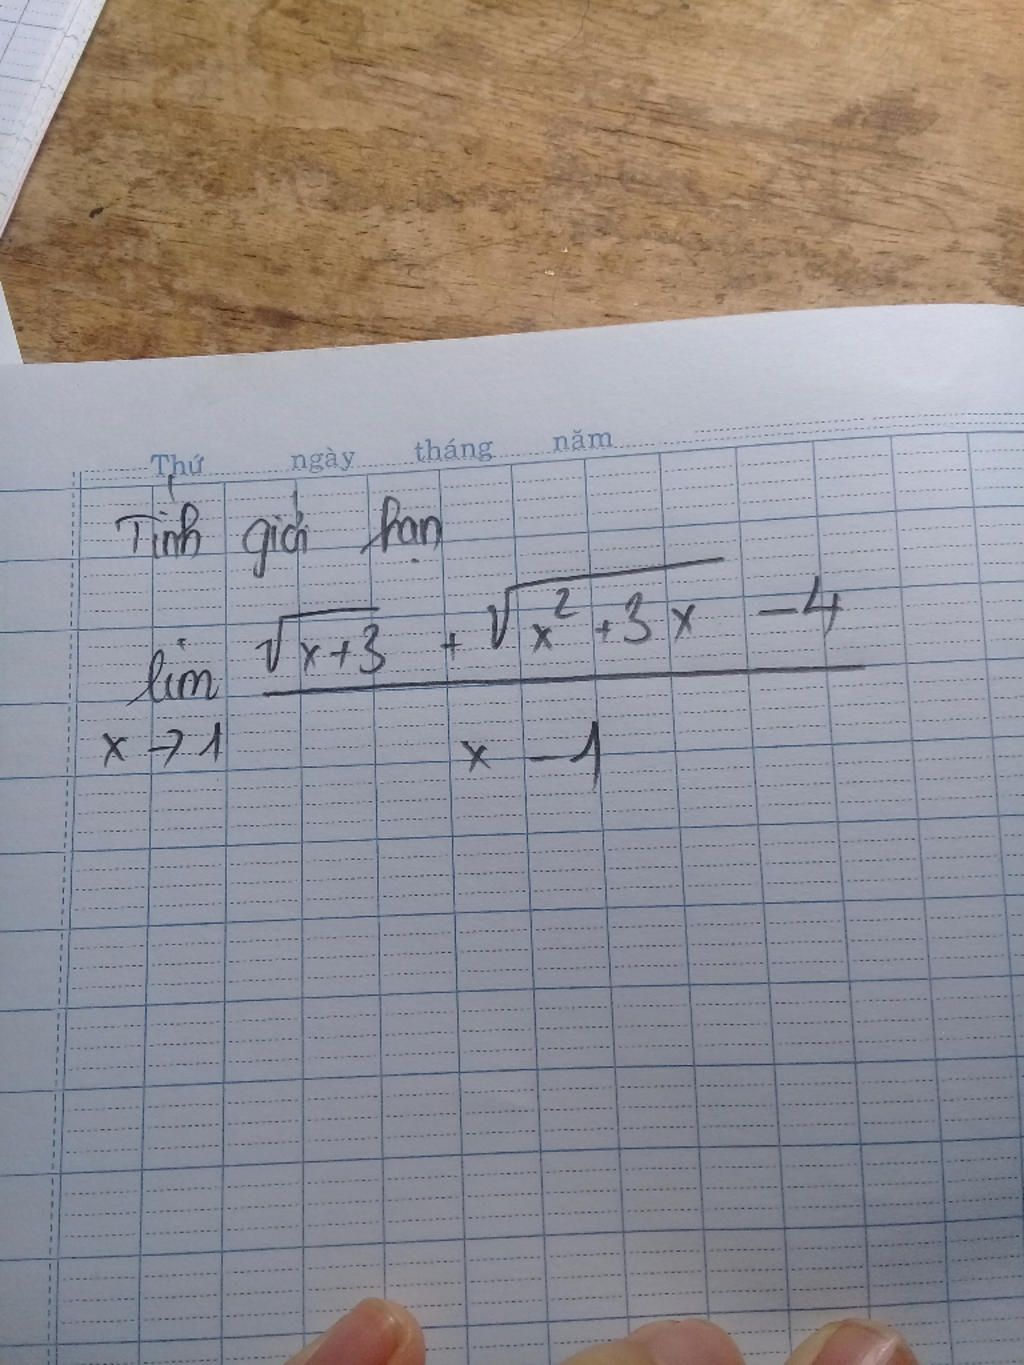 Thứ ngày tháng năm
Tính giới hạn
lim √(x+3) + √(x² + 3x) - 4
x → 1 x - 1